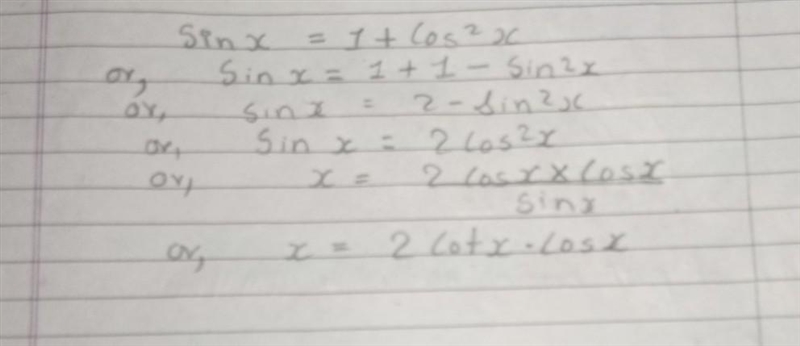 Sin x = 1 + Cos² x
or, Sin x = 1 + 1 - Sin²x
or, sin x = 2 - sin²x
or, Sin x = 2 Cos²x
or, x = 2 Cos x × Cos x / Sin x
or, x = 2 Cot x . Cos x